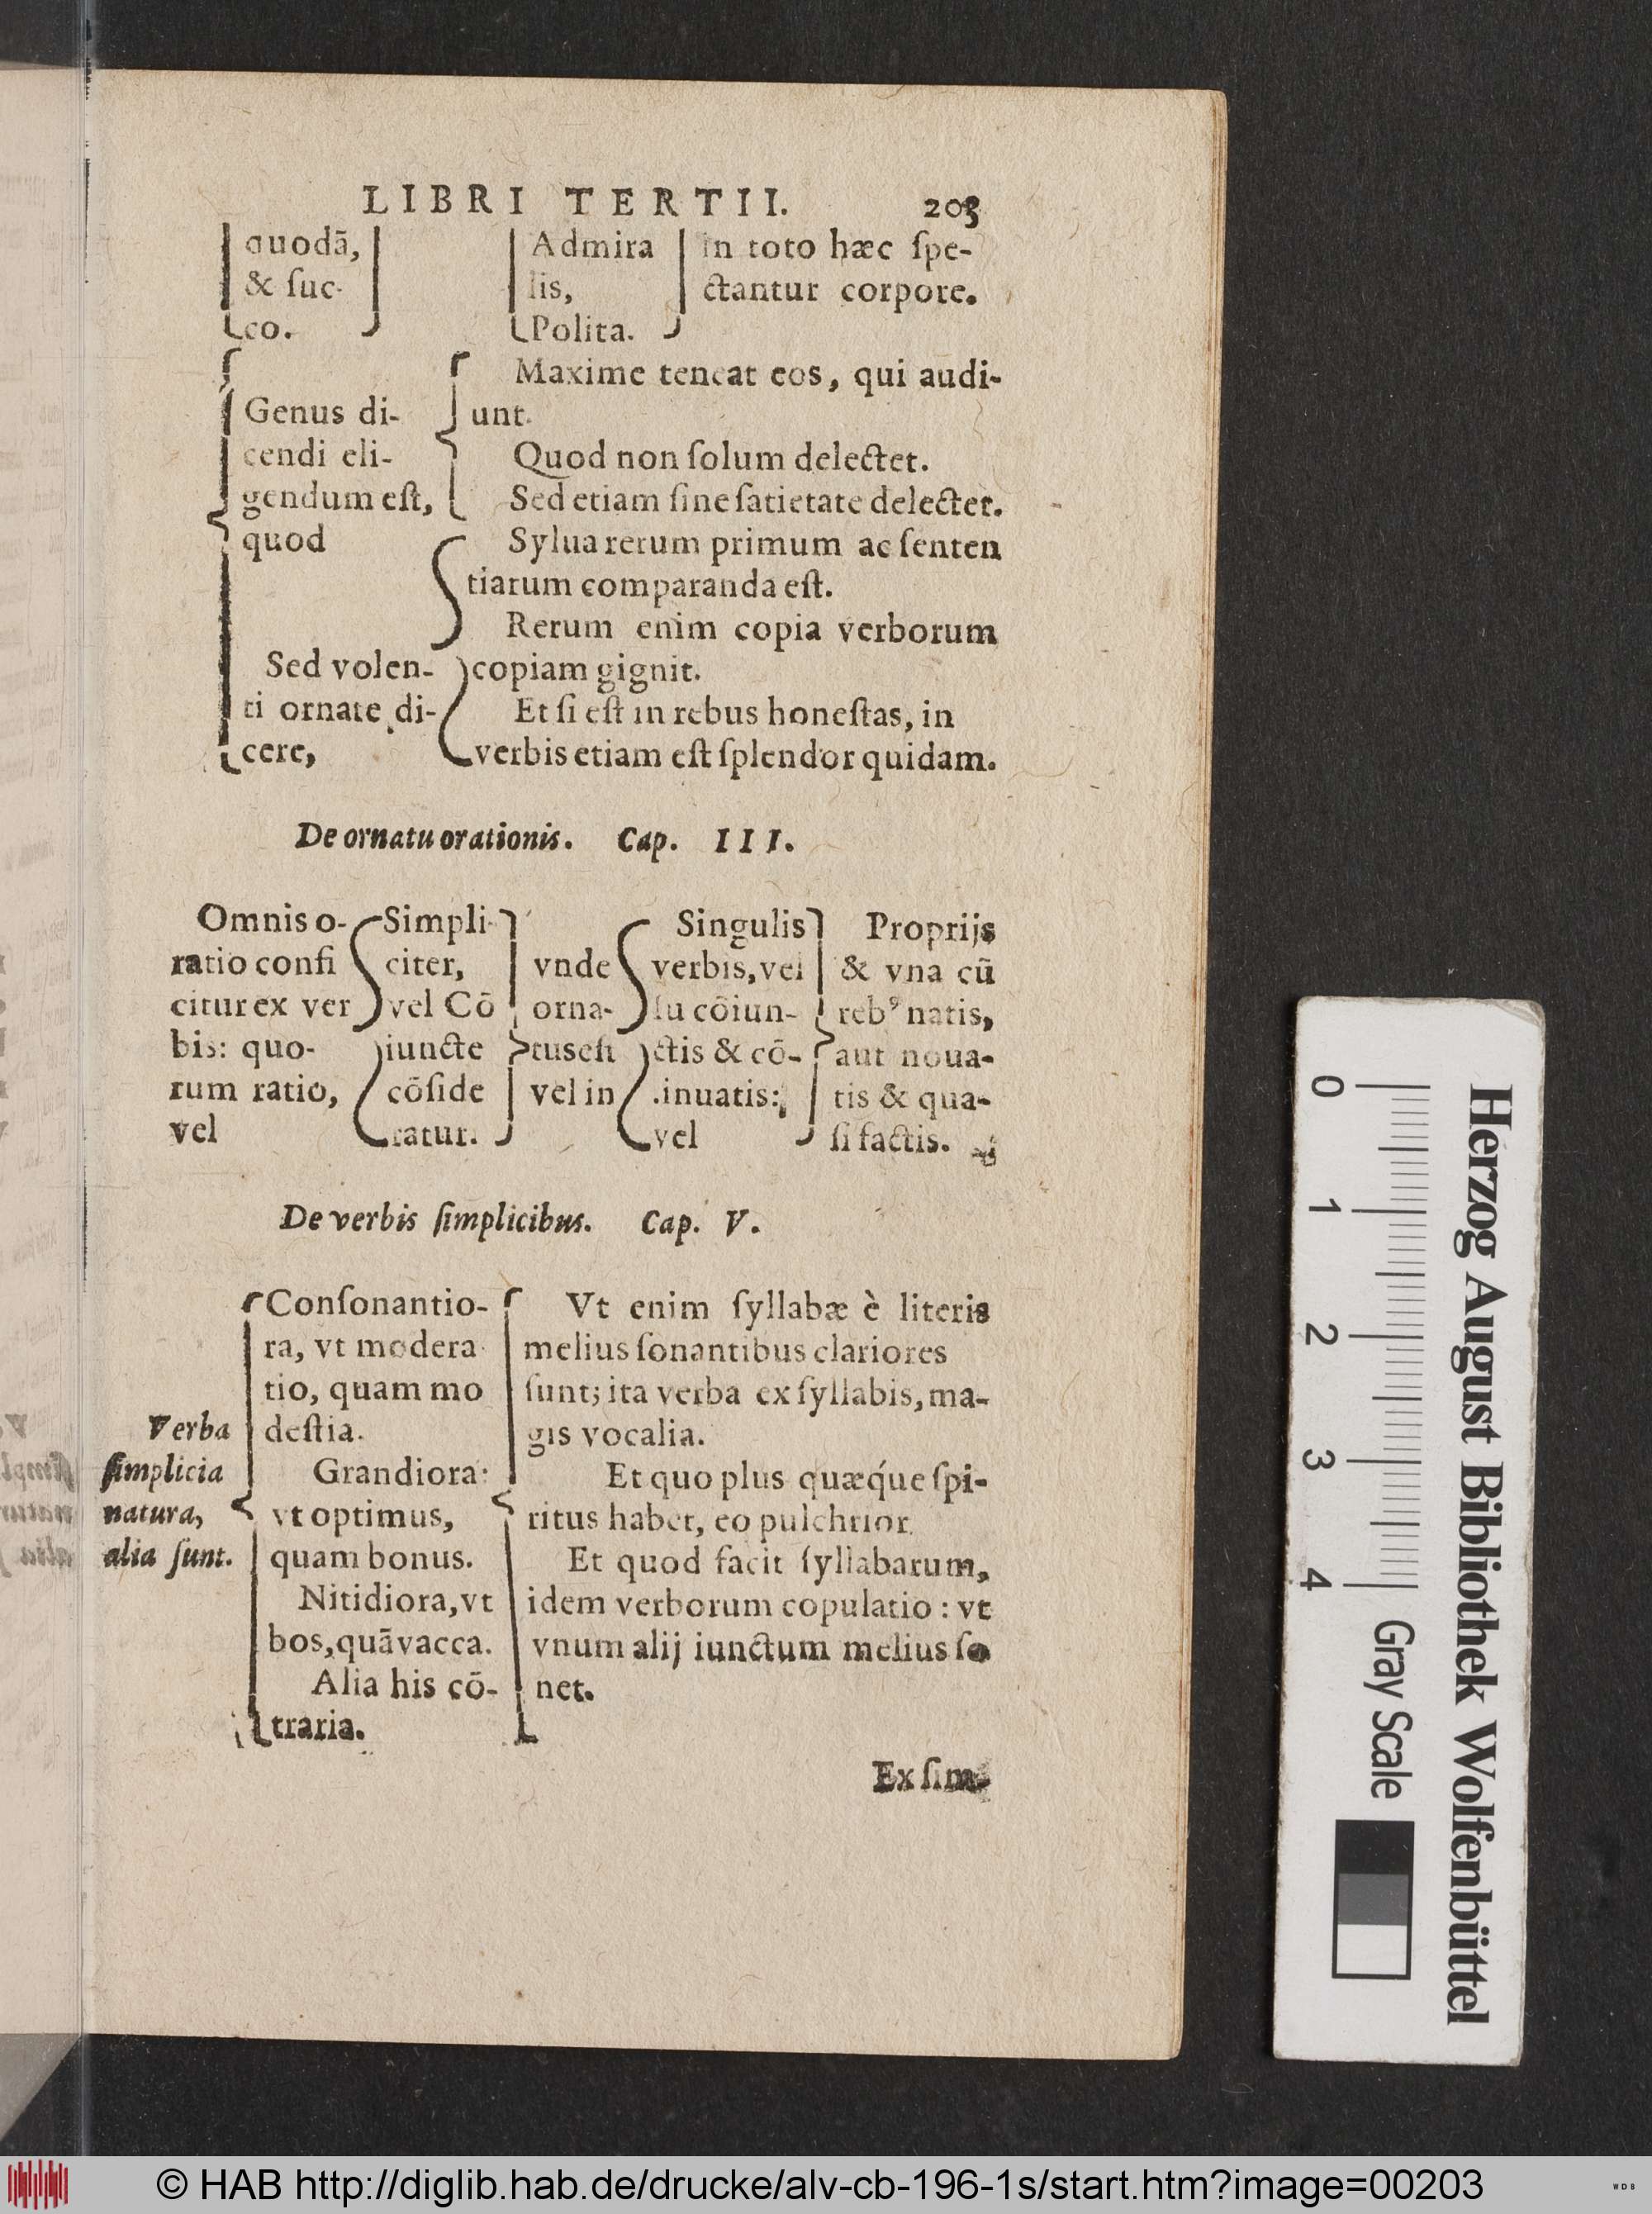 LIBRI TERTII. 203
quodā,
& ſuc-
co.
Admira
lis,
Polita.
in toto hæc ſpe-
ctantur corpore.
Genus di-
cendi eli-
gendum eſt,
quod
Maxime teneat eos, qui audi-
unt.
Quod non ſolum delectet.
Sed etiam ſine ſatietate delectet.
Sed volen-
ti ornate di-
cere,
Sylua rerum primum ac ſenten
tiarum comparanda eſt.
Rerum enim copia verborum
copiam gignit.
Et ſi eſt in rebus honeſtas, in
verbis etiam eſt ſplendor quidam.
De ornatu orationis. Cap. III.
Omnis o-
ratio confi
citur ex ver
bis: quo-
rum ratio,
vel
Simpli-
citer,
vel Cō
iuncte
cōſide
ratur.
vnde
orna-
tus eſt
vel in
Singulis
verbis, vel
ſu cōiun-
ctis & cō-
.inuatis:
vel
Proprijs
& vna cū
rebꝰ natis,
aut noua-
tis & qua-
ſi factis.
De verbis ſimplicibus. Cap. V.
Verba
ſimplicia
natura,
alia ſunt.
Conſonantio-
ra, vt modera
tio, quam mo
deſtia.
Grandiora:
vt optimus,
quam bonus.
Nitidiora, vt
bos, quā vacca.
Alia his cō-
traria.
Vt enim ſyllabæ è literis
melius ſonantibus clariores
ſunt; ita verba ex ſyllabis, ma-
gis vocalia.
Et quo plus quæq́ue ſpi-
ritus habet, eo pulchrior.
Et quod facit ſyllabarum,
idem verborum copulatio: vt
vnum alij iunctum melius ſo
net.
Ex ſim-
Herzog August Bibliothek Wolfenbüttel
0 1 2 3 4 Gray Scale
© HAB http://diglib.hab.de/drucke/alv-cb-196-1s/start.htm?image=00203
WDB